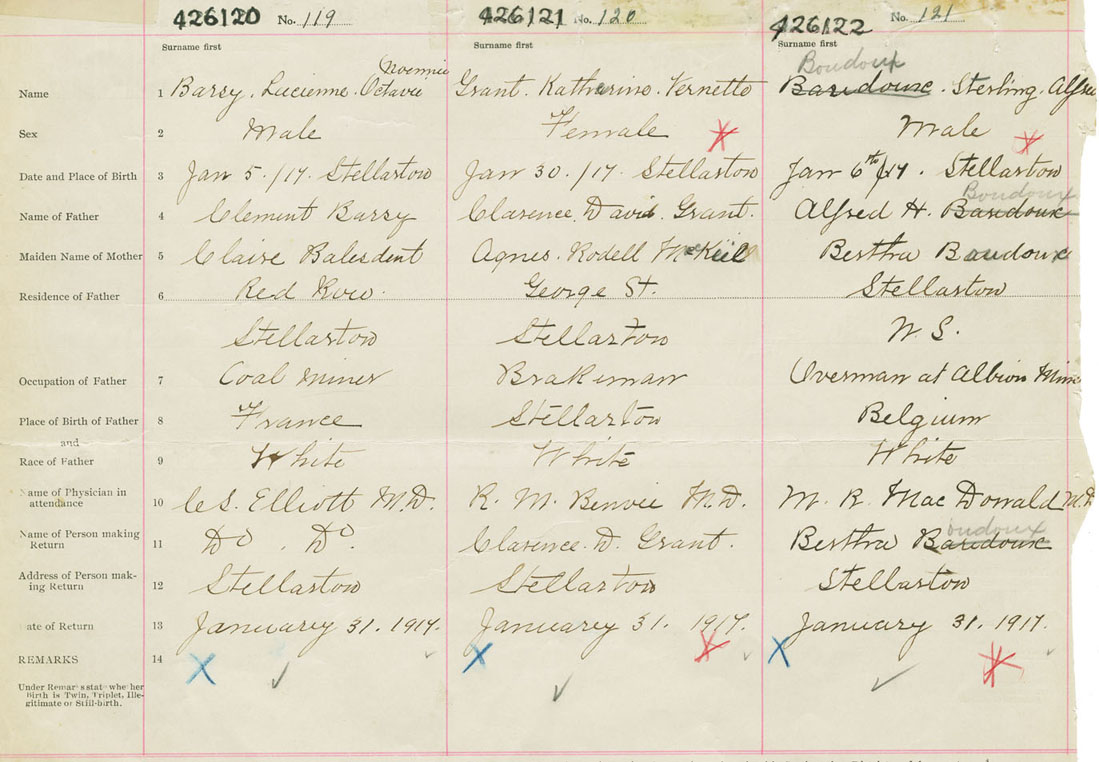 426120 No. 119 426121 No. 120 426122 No. 121
Surname first Surname first Surname first
Noemie Boudoux
Name 1 Barry. Lucienne. Octavie Grant. Katherine. Vernetto Baudoux. Sterling. Alfred
Sex 2 Male Female Male
Date and Place of Birth 3 Jan 5./17. Stellarton Jan 30./17 Stellarton Jan 6th/17. Stellarton
Boudoux
Name of Father 4 Clement Barry Clarence David Grant. Alfred H. Baudoux
Maiden Name of Mother 5 Claire Balesdent Agnes. Rodell McKeil Bertha Baudoux
Residence of Father 6 Red Row. George St. Stellarton
Stellarton Stellarton N.S.
Occupation of Father 7 Coal Miner Brakeman Overman at Albion Mine
Place of Birth of Father 8 France Stellarton Belgium
and
Race of Father 9 White White White
Name of Physician in
attendance 10 C.S. Elliott M.D. R. M. Benvie M.D. M. R. MacDonald M.D.
oudoux
Name of Person making
Return 11 Do. Do. Clarence. D. Grant. Bertha Baudoux
Address of Person mak-
ing Return 12 Stellarton Stellarton Stellarton
ate of Return 13 Januarey 31. 1917. Januarey 31. 1917. January 31. 1917.
REMARKS 14
Under Remarks state whether
Birth is Twin, Triplet, Ille-
gitimate or Still-birth.